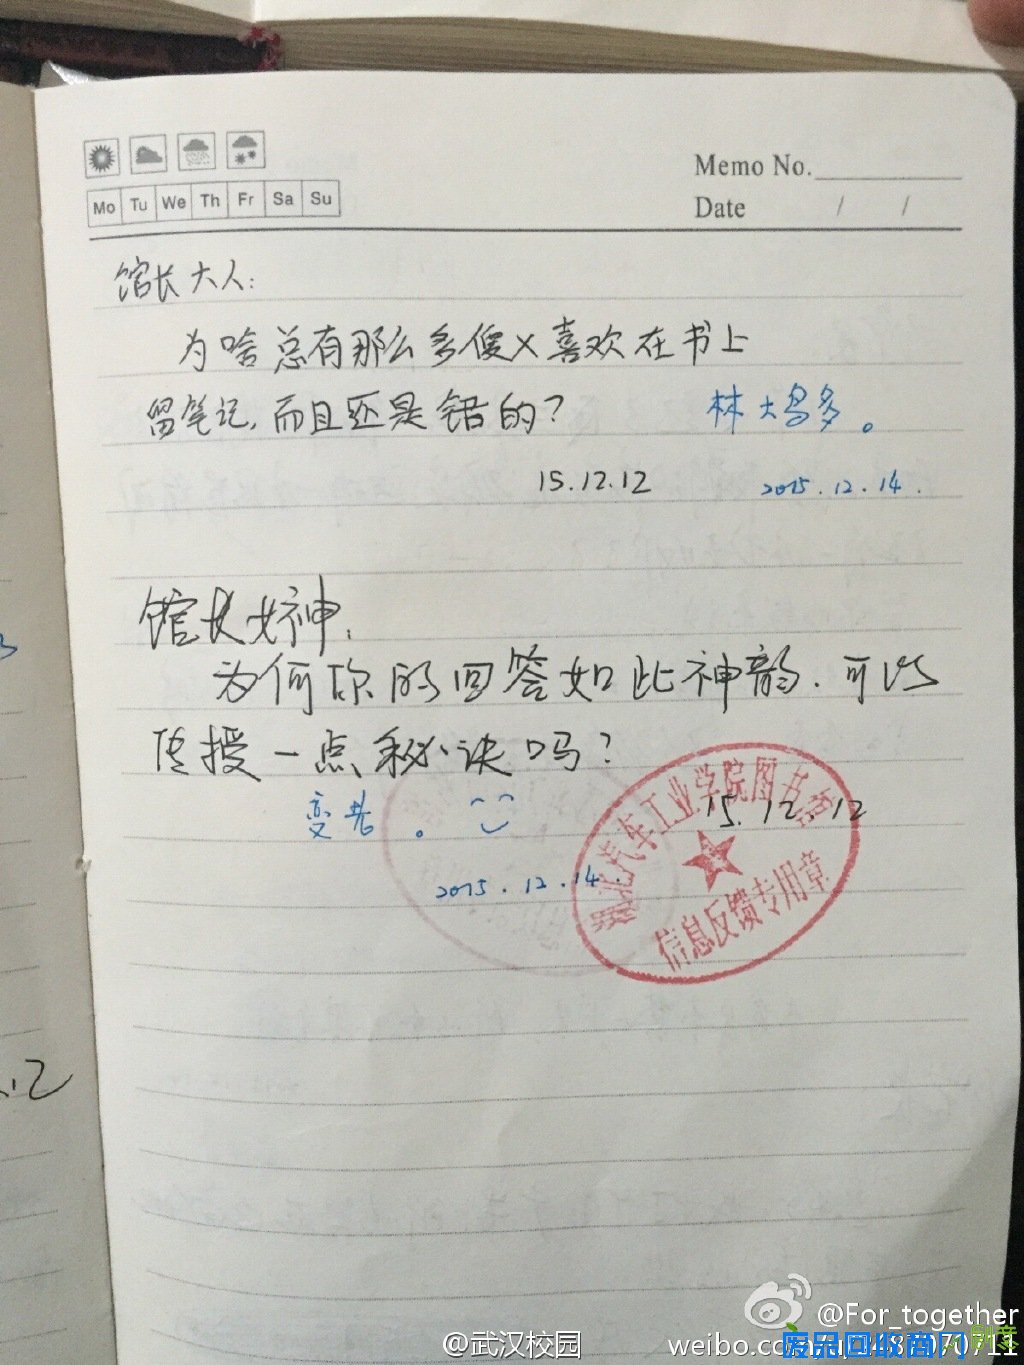 Memo No.
Mo Tu We Th Fr Sa Su
Date / /
馆长大人:
为啥总有那么多傻X喜欢在书上
留笔记,而且还是错的?
林大鸟多。
15.12.12
2015.12.14.
馆长女神:
为何你的回答如此神韵.可以
传授一点秘诀吗?
15.12.12
变老。
2015.12.14.
湖北汽车工业学院图书馆
信息反馈专用章
@For_together
@武汉校园
weibo.com/
废品回收商网